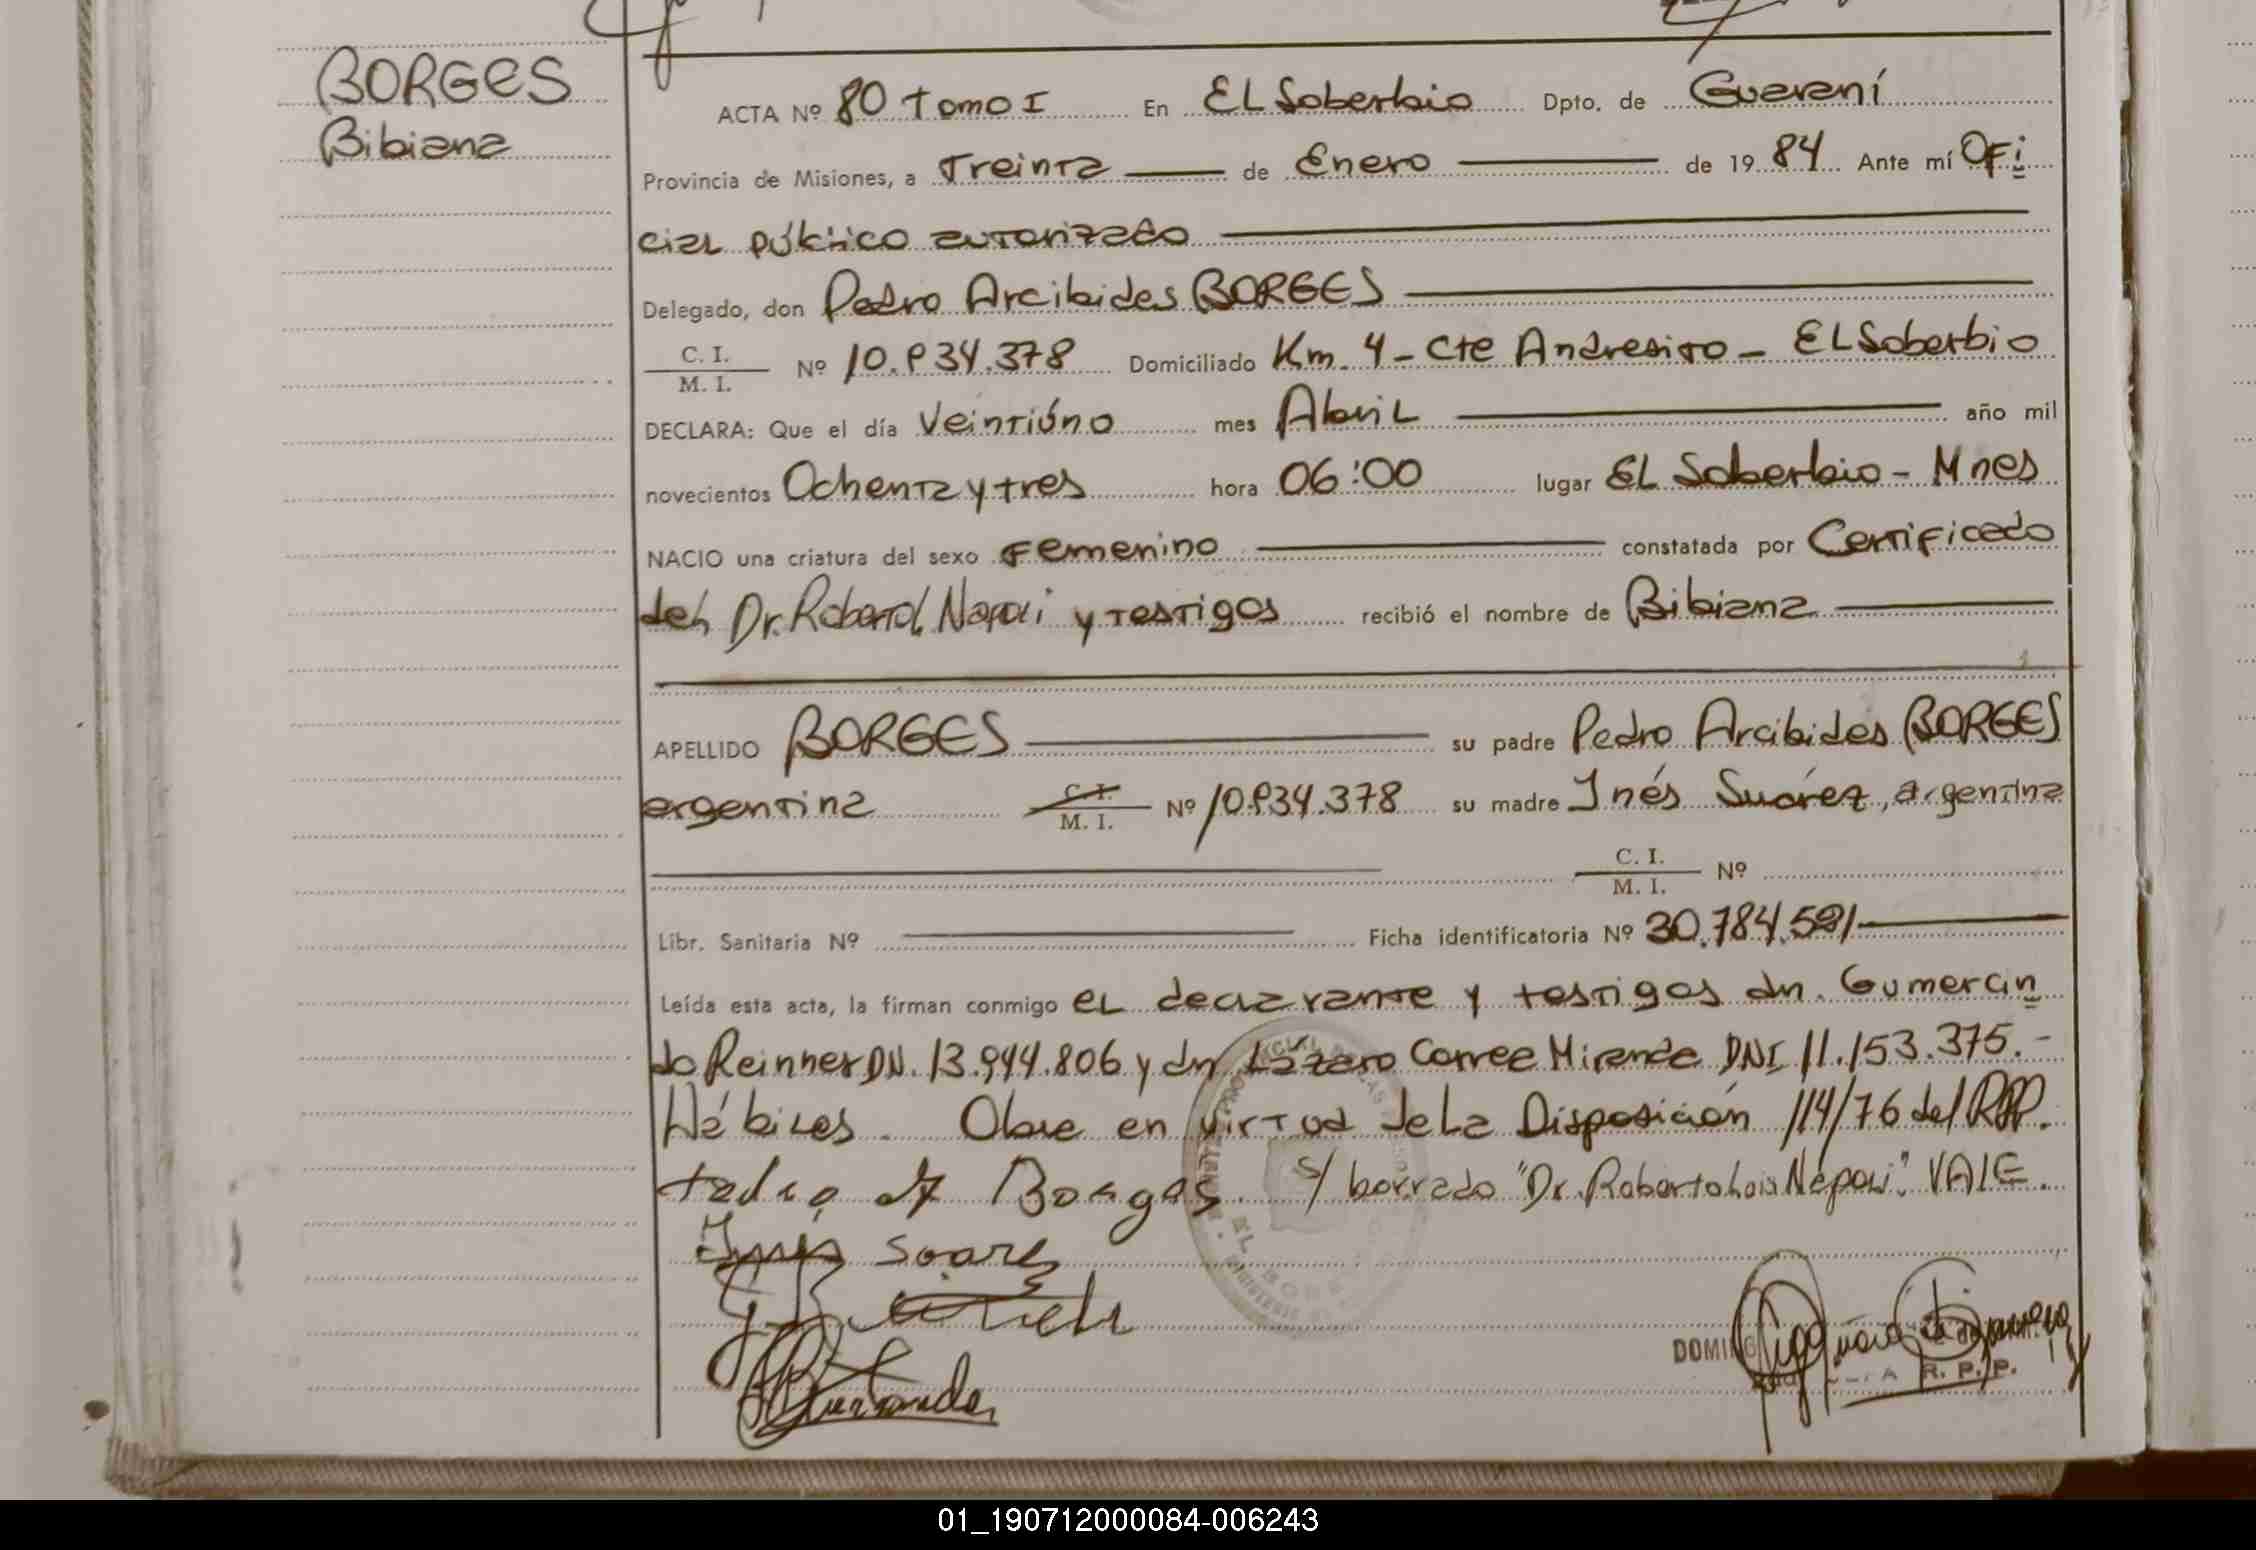 BORGES
Bibiana
ACTA Nº 80 tomo I En EL Soberbio Dpto. de Guaraní
Provincia de Misiones, a Treinta de Enero de 1984 Ante mí Ofi
cial público autorizado
Delegado, don Pedro Arcibides BORGES
C. I.
M. I. Nº 10.934.378 Domiciliado Km. 4 - Cte Andresito - EL Soberbio
DECLARA: Que el día Veintiúno mes Abril año mil
novecientos Ochenta y tres hora 06:00 lugar EL Soberbio - Mnes
NACIO una criatura del sexo Femenino constatada por Certificado
del Dr. Roberto y testigos recibió el nombre de Bibiana
APELLIDO BORGES su padre Pedro Arcibides BORGES
argentina C. I. M. I. Nº 10.934.378 su madre Inés Suárez, argentina
C. I.
M. I. Nº
Libr. Sanitaria Nº Ficha identificatoria Nº 30.784.591
Leída esta acta, la firman conmigo el declarante y testigos dn. Gumercin
do Reinher DN. 13.944.806 y dn Lázaro Correa Miranda DNI 11.153.375.-
Hábiles. Obre en virtud de La Disposición 114/76 del RPP.
Borges s/ borrado "Dr. Roberto VALE.
Inés soarez
DOMING
R. P. P.
01_190712000084-006243